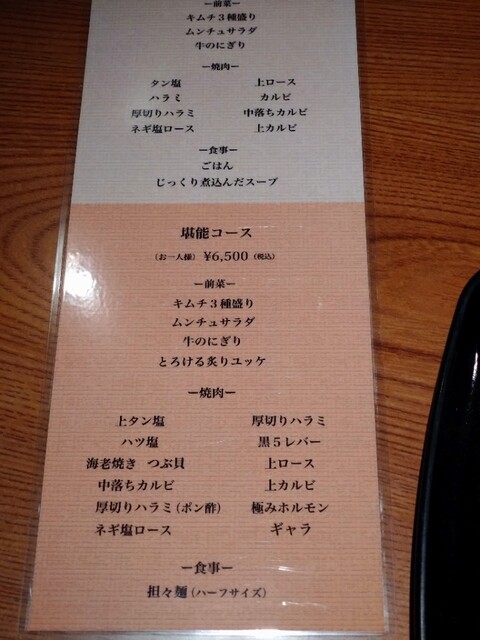 ー前菜ー
キムチ３種盛り
ムンチュサラダ
牛のにぎり
ー焼肉ー
タン塩 上ロース
ハラミ カルビ
厚切りハラミ 中落ちカルビ
ネギ塩ロース 上カルビ
ー食事ー
ごはん
じっくり煮込んだスープ
堪能コース
（お一人様）¥6,500（税込）
ー前菜ー
キムチ３種盛り
ムンチュサラダ
牛のにぎり
とろける炙りユッケ
ー焼肉ー
上タン塩 厚切りハラミ
ハツ塩 黒５レバー
海老焼き つぶ貝 上ロース
中落ちカルビ 上カルビ
厚切りハラミ（ポン酢） 極みホルモン
ネギ塩ロース ギャラ
ー食事ー
担々麺（ハーフサイズ）